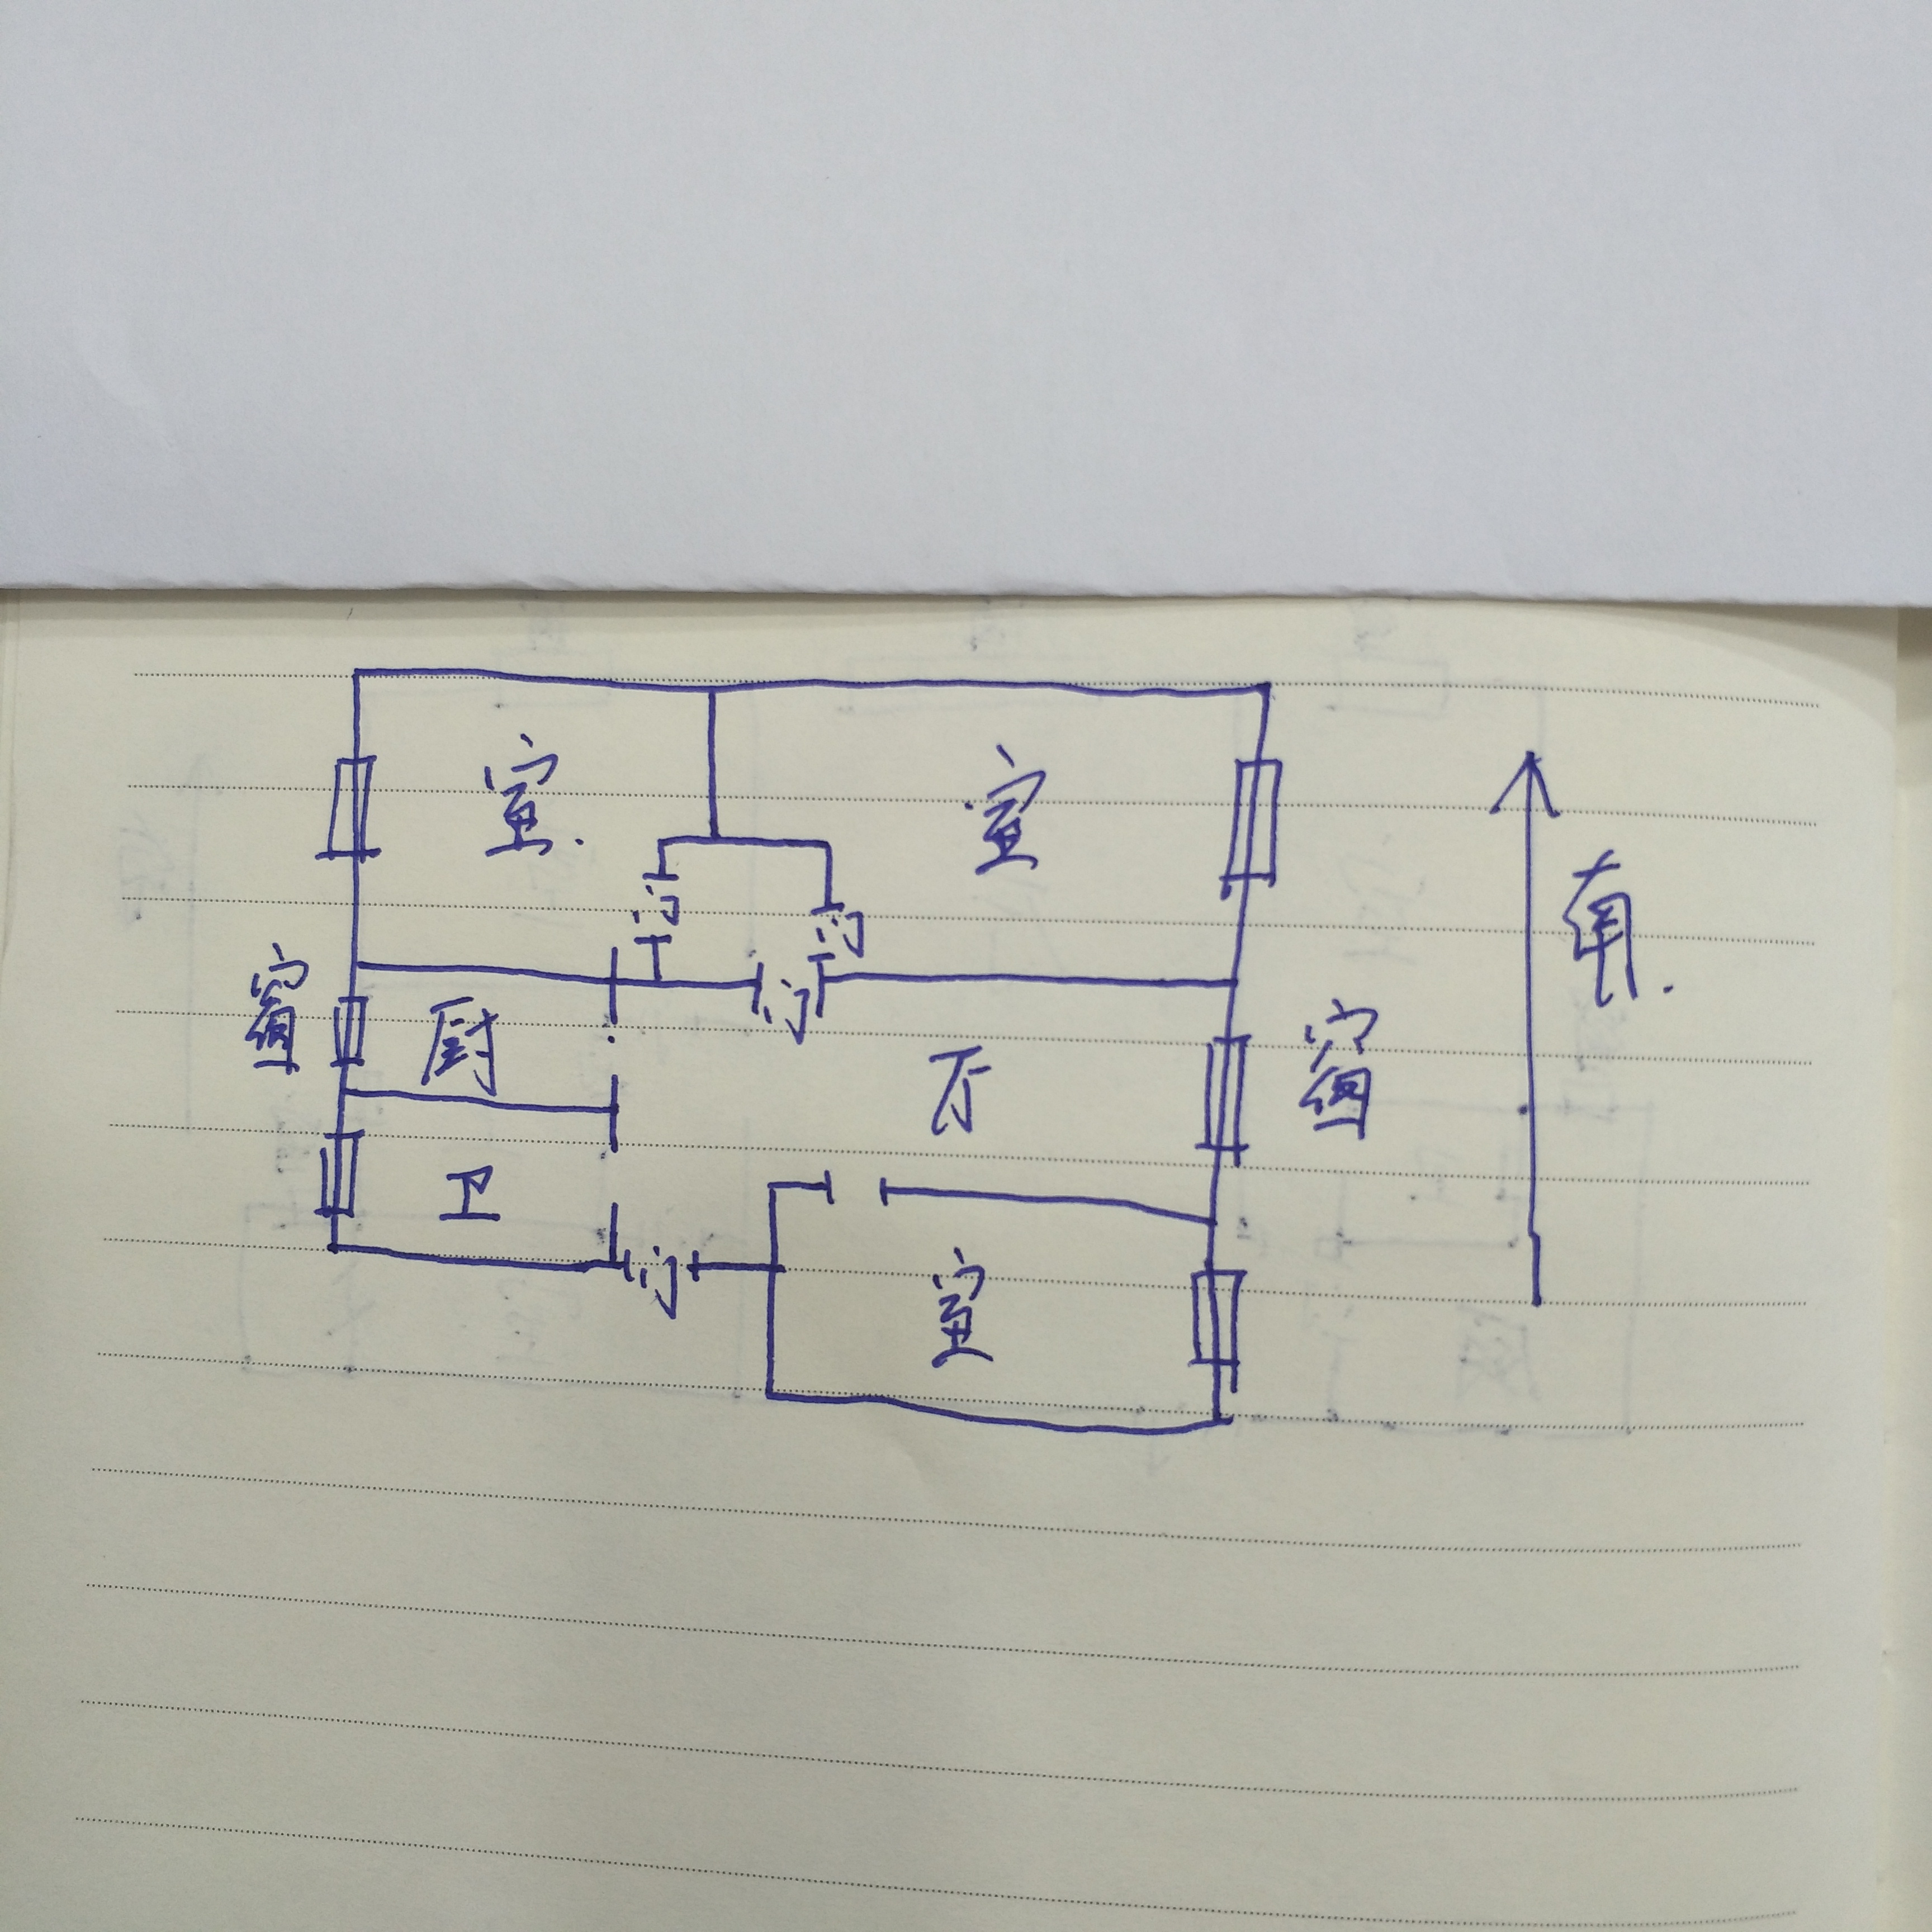 室.
室
门
门
南.
窗
厨
门
厅
窗
卫
门
室